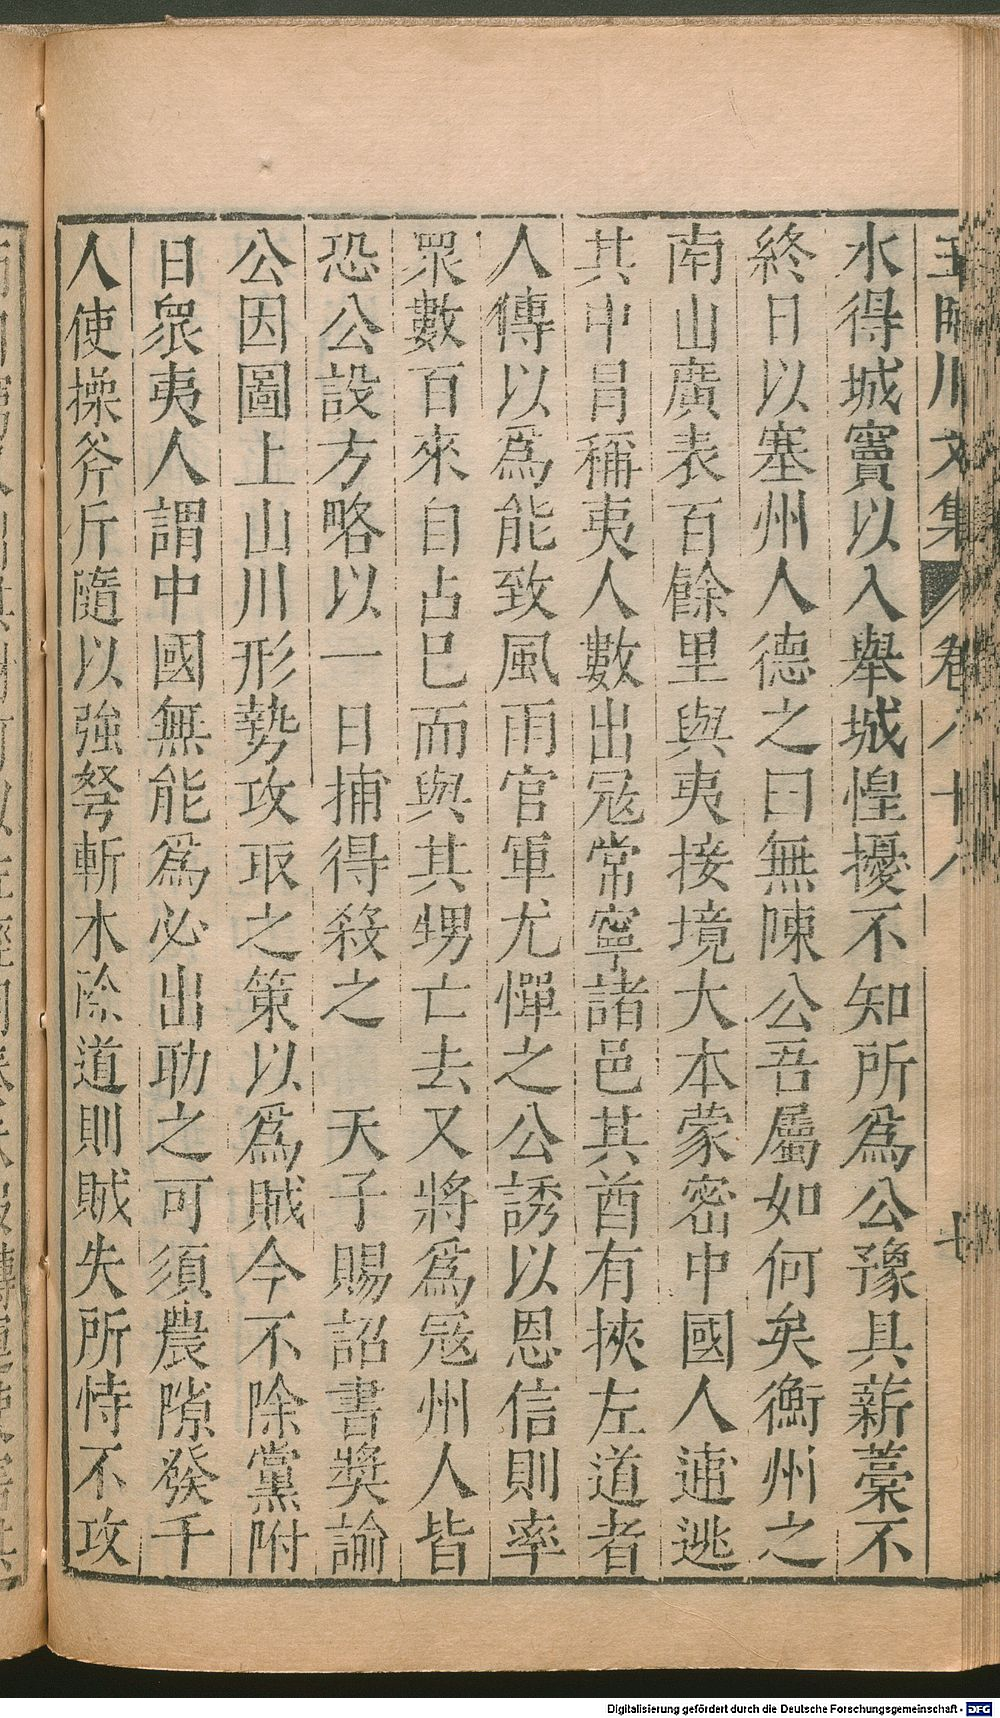 王臨川文集 卷八十八 七
水得城竇以入舉城惶擾不知所爲公豫具薪藁不
終日以塞州人德之曰無陳公吾屬如何矣衡州之
南山廣表百餘里與夷接境大本蒙密中國人逋逃
其中冒稱夷人數出冦常寧諸邑其酋有挾左道者
人傳以爲能致風雨官軍尤憚之公誘以恩信則率
眾數百來自占巳而與其甥亡去又將爲冦州人皆
恐公設方略以一日捕得殺之　天子賜詔書奬諭
公因圖上山川形勢攻取之策以爲賊今不除黨附
日衆夷人謂中國無能爲必出助之可須農隙發千
人使操斧斤隨以強弩斬木除道則賊失所恃不攻
Digitalisierung gefördert durch die Deutsche Forschungsgemeinschaft - DFG